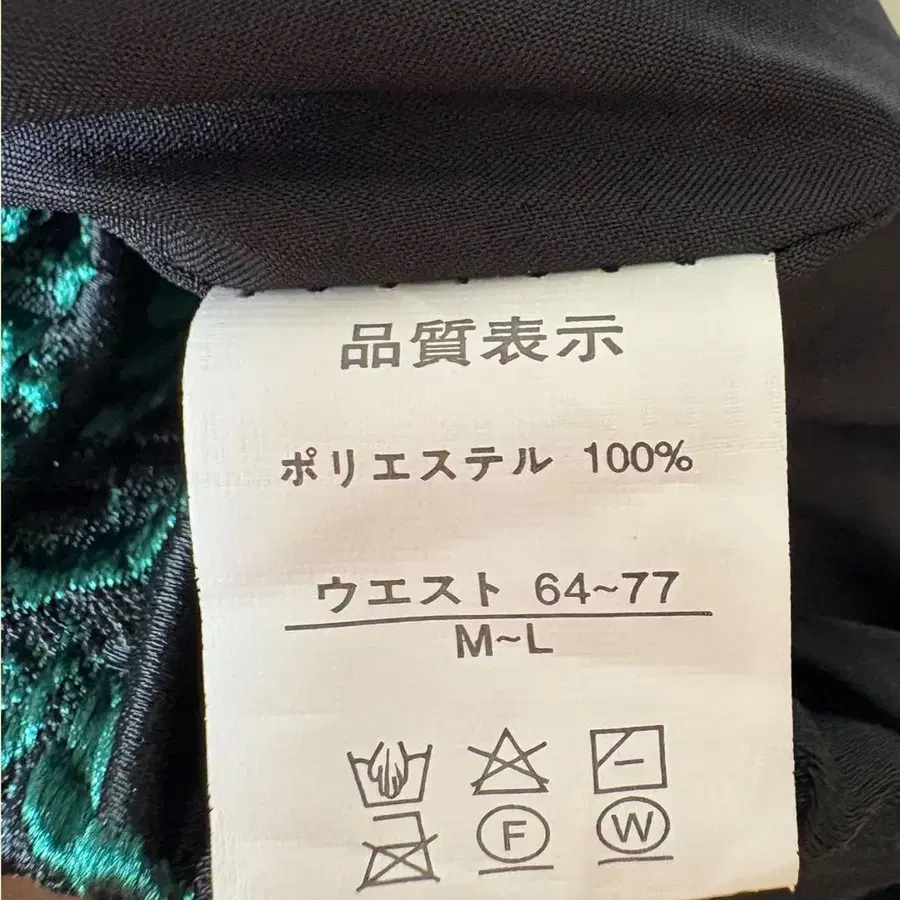 品質表示
ポリエステル 100%
ウエスト 64~77
M~L
F W